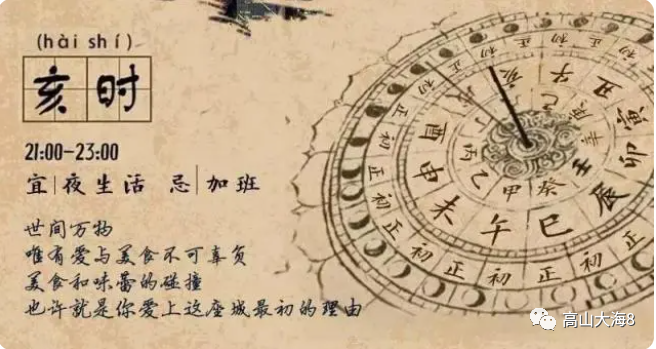 (hài shí)
亥时
21:00-23:00
宜|夜生活 忌|加班
世间万物
唯有爱与美食不可辜负
美食和味蕾的碰撞
也许就是你爱上这座城最初的理由
亥 子 丑 寅 卯 辰 巳 午 未 申 酉
甲 乙 丙
癸 壬 辛 庚
初 正 初 正 初 正 初 正 初 正 初 正
高山大海8